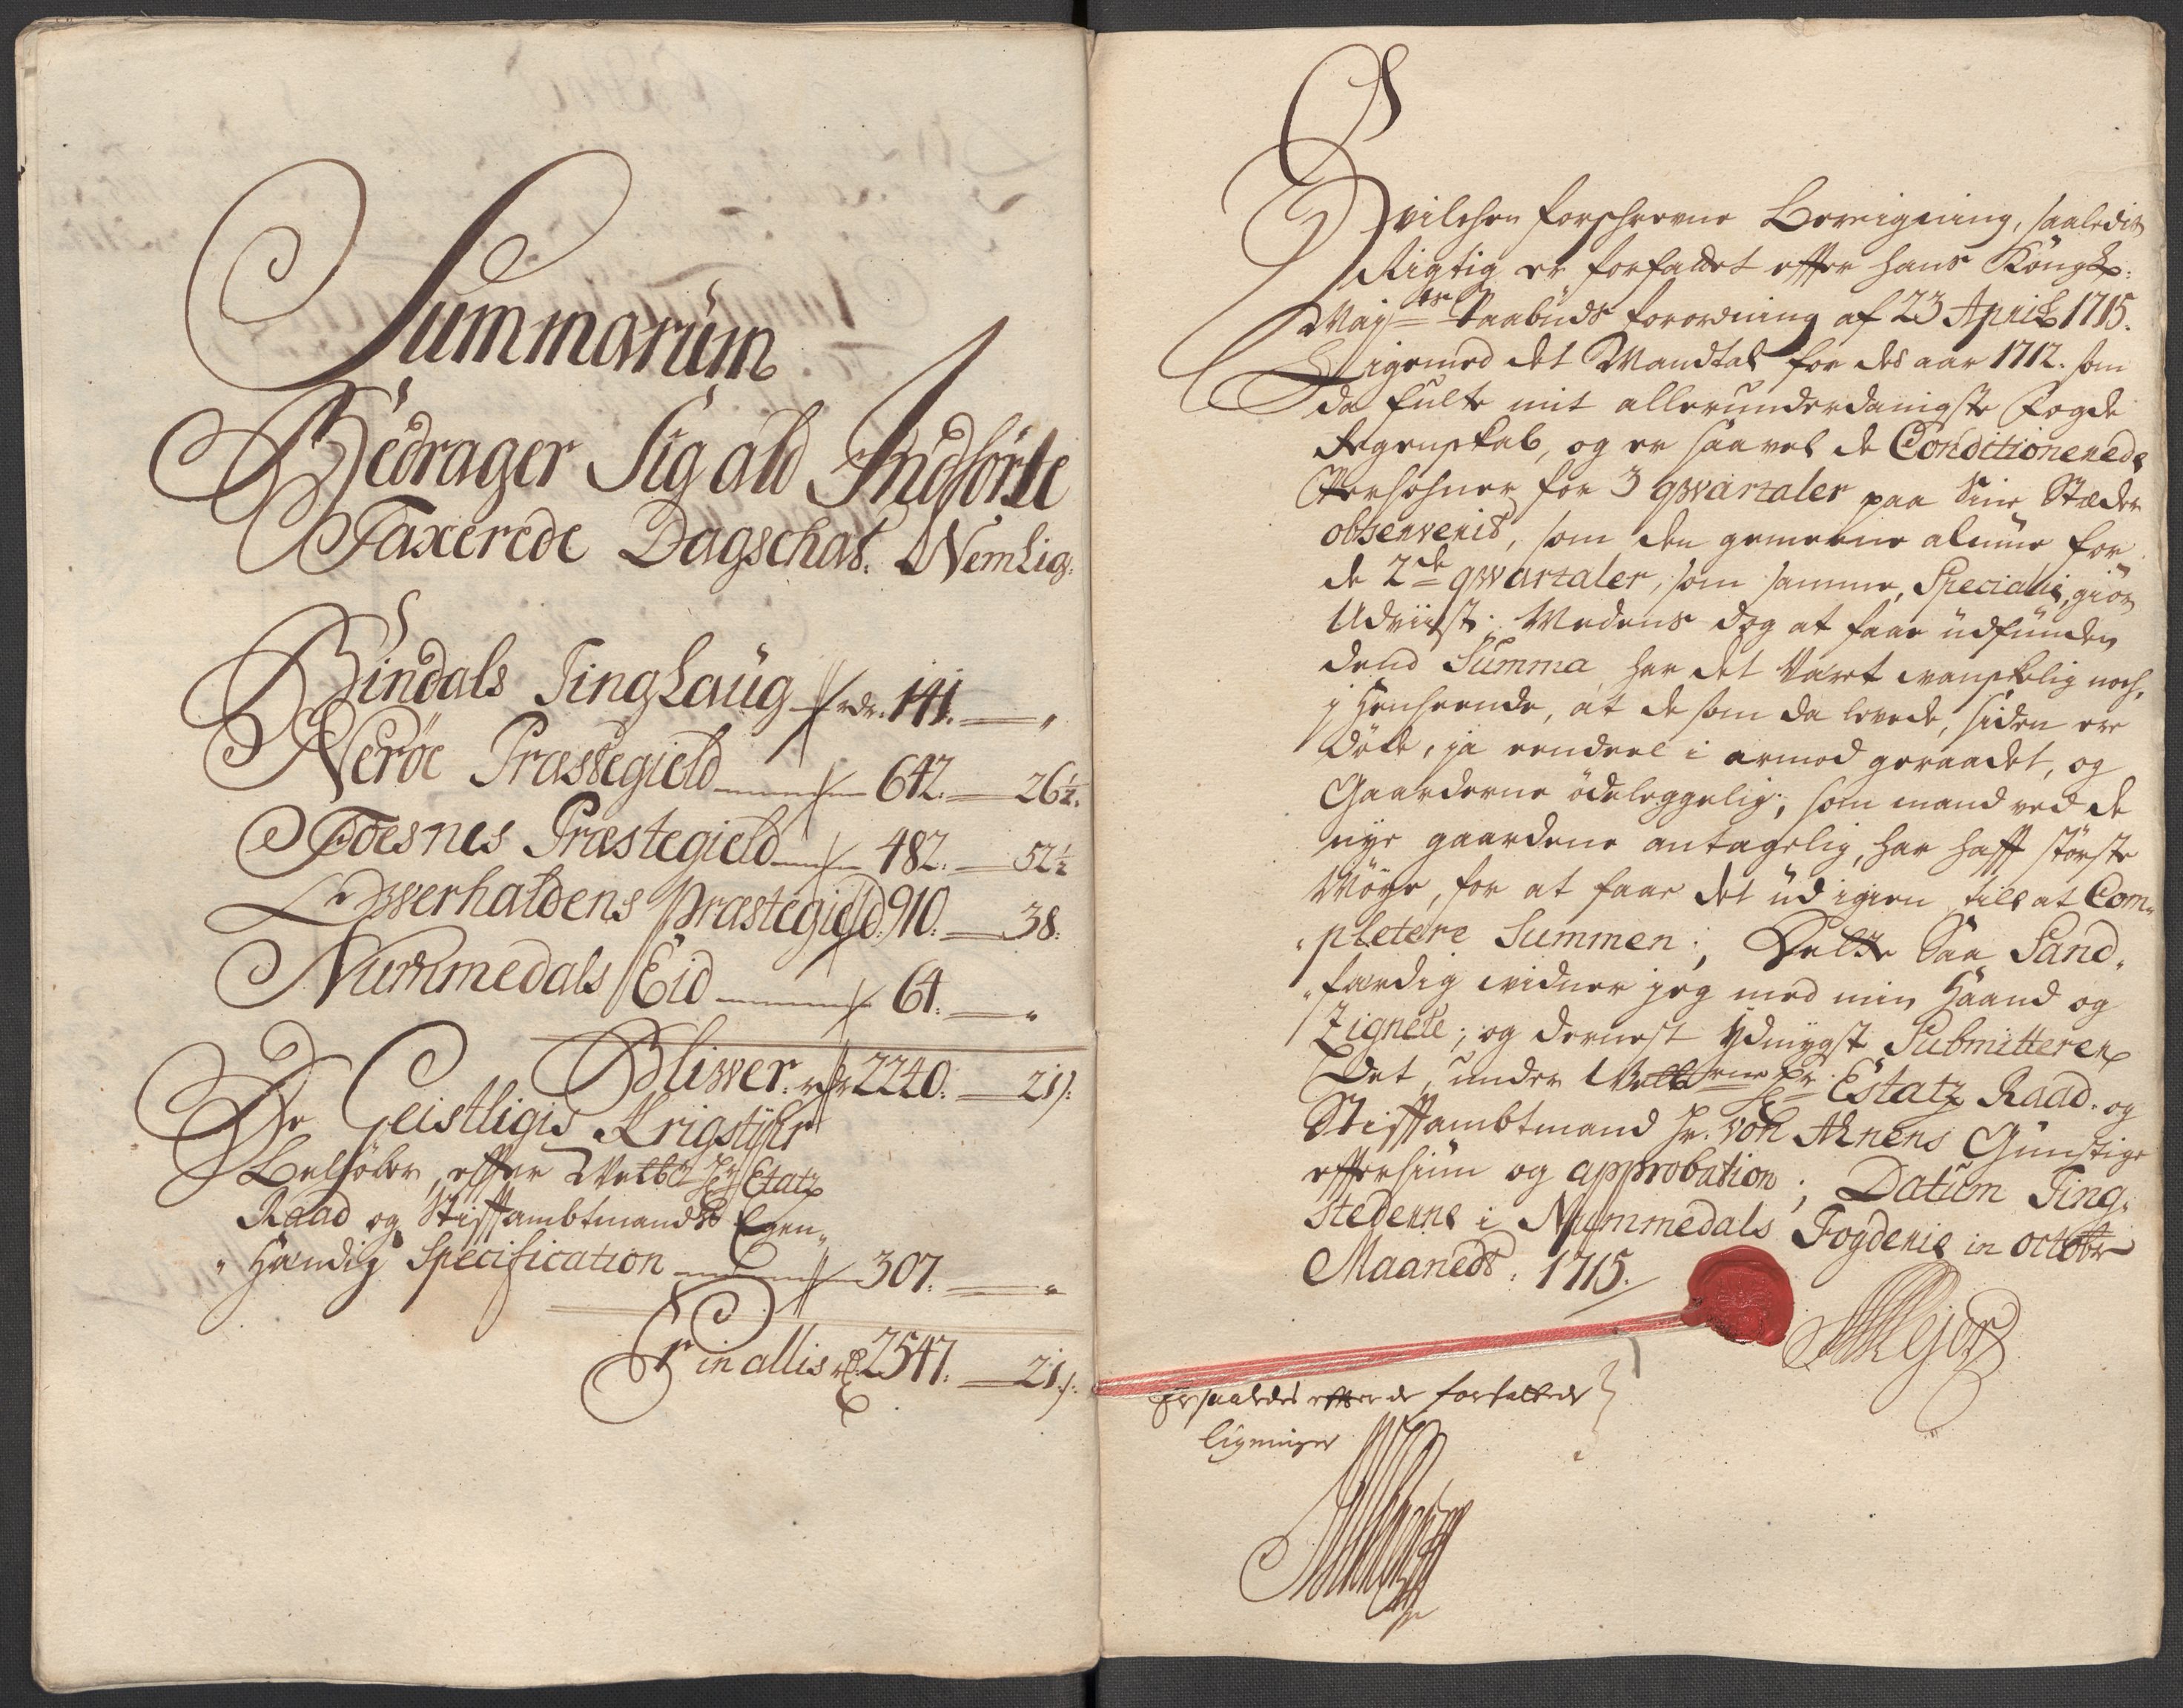 Summarüm
Bedrager Sig ald Indförte
Taxerede Dagschat. Nemlig:
Bindals Tinglaüg rdr. 141. — "
Neröe Præstegield — 642. — 26½.
Foesnes Præstegield — 482. — 52½
Owerhaldens Præstegield: 910. — 38.
Nummedals Eid — 64. — "
Bliwer. rdr 2240. — 21 ß:
De Geistligis Krigstÿhr
belöber, efter Welbr Hr Etatz
Raad og Stiftambtmands Egen„
„Hændig Specification — 307. — "
Er in allis rdr 2547. — 21 ß.
Hvilchen forschrevne Lereigning, saaledis
Rigtig er forfattet efter hans Kongl:
Mayts Naadigste forordning af 23 April 1715.
Ligemed det Mandtal for det aar 1712. som
da fulte mit allerunderdanigste Fogde
Regenskab, og er saavel de Conditionerede
Persohner for 3 qwartaler paa Sine Stæder
observerit, som den gemeene almue for
de 2de qwartaler, som samme, Specialis, giör
Udviist. Medens dog at faae üdfunden
dend Summa, har det Været vanskelig noch,
i Henseende, at de som da levede, siden ere
döde, ja eendeel i armod geraadet, og
Gaarderne ödeleggelig; som mand ved de
nye gaardene antagelig, har hafft störste
Möye, for at faae det üd igien till at Com„
„pletere Summen; Dette Saa Sand„
„færdig vidner jeg med min Haand og
Zignete; og dernest Ydmygst Submitterer
Det, under Welbrne Hr Estatz Raad. og
Stiftambtmand Hr. von Ahnens Günstige
eftersiün og approbation; Datum Ting„
Stederne i Nummedals Fogderie in octobr
Maanedt. 1715.
Er saaledes efter de forfattede
ligninger